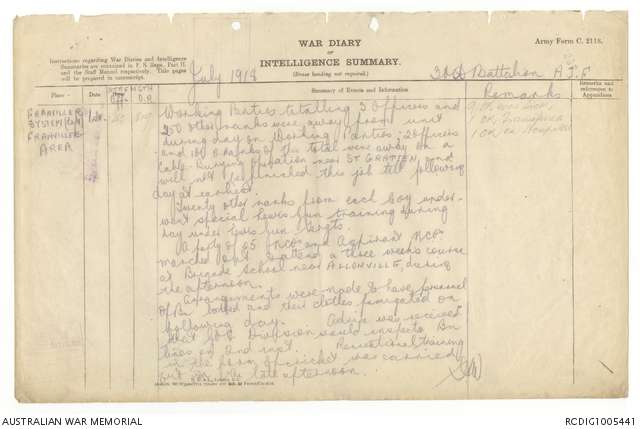 WAR DIARY
or
INTELLIGENCE SUMMARY.
(Erase heading not required).
Army Form C. 2118.
Instructions regarding War Diaries and Intelligence
Summaries are contained in F. S. Regs., Part II.
and the Staff Manual respectively. Title pages
will be prepared in manuscript.
July 1918
Battalion A.I.F.
Place
Date
STRENGTH
Offs. O.R.
Summary of Events and Information
Remarks
Remarks and
references to
Appendices
FRANVILLERS
SYSTEM
FRANVILLERS
AREA
Working Parties totalling 5 Officers and
250 other ranks were away from unit
during day on Working Parties; 2 Officers
and 100 O ranks of this total were away on a
cable-burying operation near ST GRATIEN, and
will not be finished this job till following
day at earliest.
Twenty other ranks from each Coy under-
went special Lewis Gun training during
day under Lewis Gun Sergts.
A party of 25 NCOs and Aspirant NCOs
marched out to attend a three weeks course
at Brigade School near ALLONVILLE, during
the afternoon.
Arrangements were made to have personnel
of Bn bathed and their clothes fumigated on
following day. Advice was received
that GOC Division would inspect Bn
lines on 2nd inst. Recreational training
in the form of cricket was carried
out in the late afternoon.
AUSTRALIAN WAR MEMORIAL
RCDIG1005441